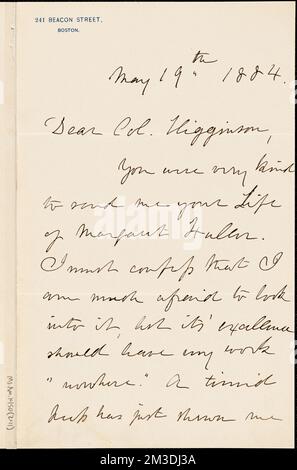 241 BEACON STREET,
BOSTON.
May 19th 1884.
Dear Col. Higginson,
You were very kind
to send me your Life
of Margaret Fuller.
I must confess that I
am much afraid to look
into it, lest it's excellence
should leave my work
"nowhere." A timid
has just shown me
alamy
Image ID: 2M3DJ3A
www.alamy.com